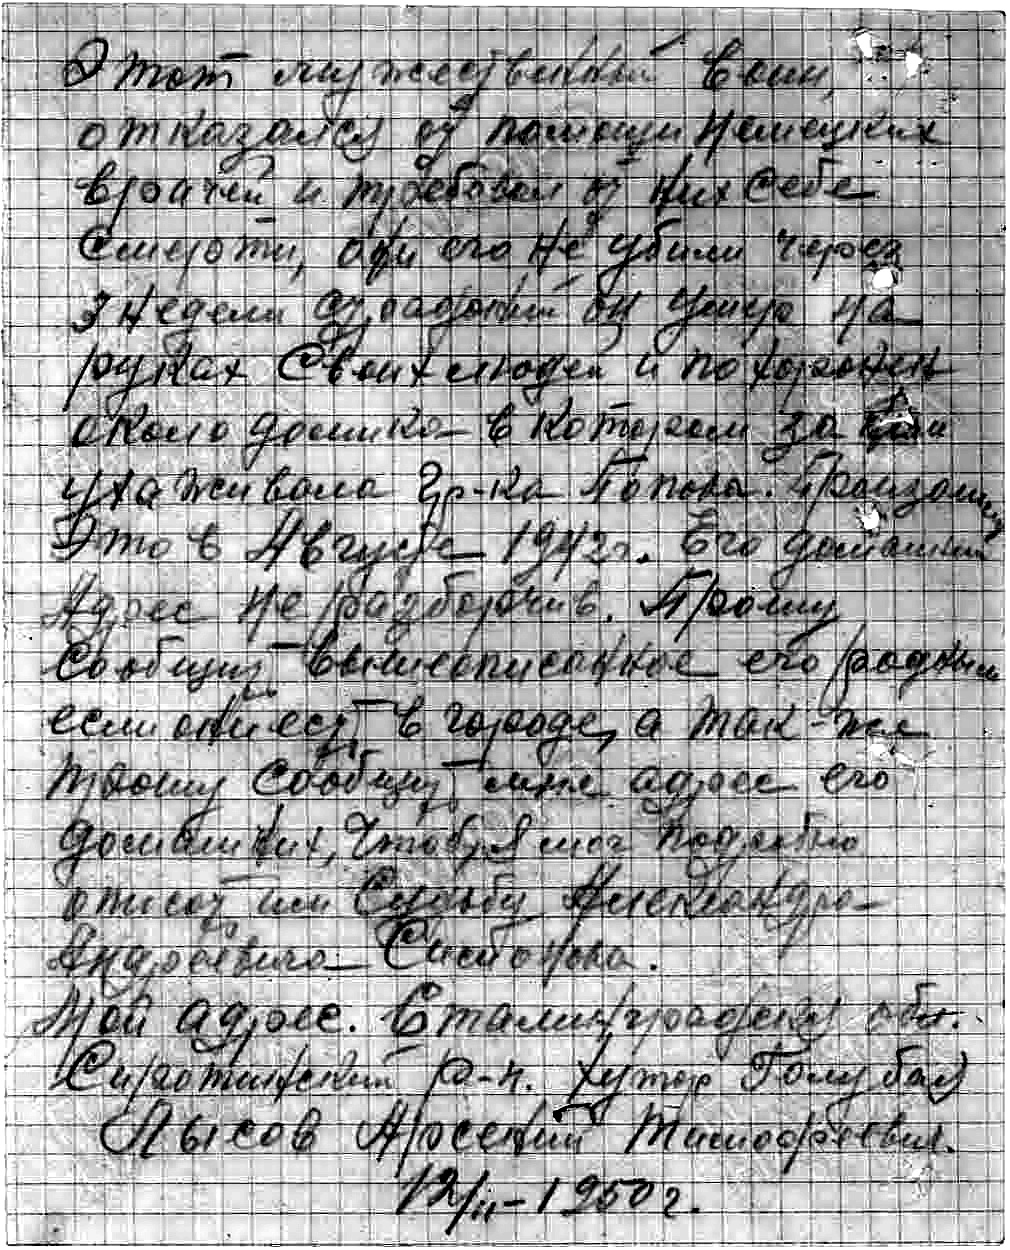 Этот мужественный воин,
отказался от помощи немецких
врачей и требовал от них себе
смерти, они его не убили через
3 недели страданий он умер на
руках своих людей и похоронен
около домика в котором за ним
ухаживала гр-ка Попова. Произошло
Это в Августе 1942 г. Его домашний
Адрес не разборчив. Прошу
сообщить вышеописанное его родным
если они есть в городе, а так-же
прошу сообщить мне адрес его
домашних, чтобы я мог подробно
описать им Судьбу Александра
Андреевича
Мой адрес. Сталинградская обл.
Сиротинский р-н. Хутор Голубая
Лысов Арсений Тимофеевич.
12/II-1950 г.